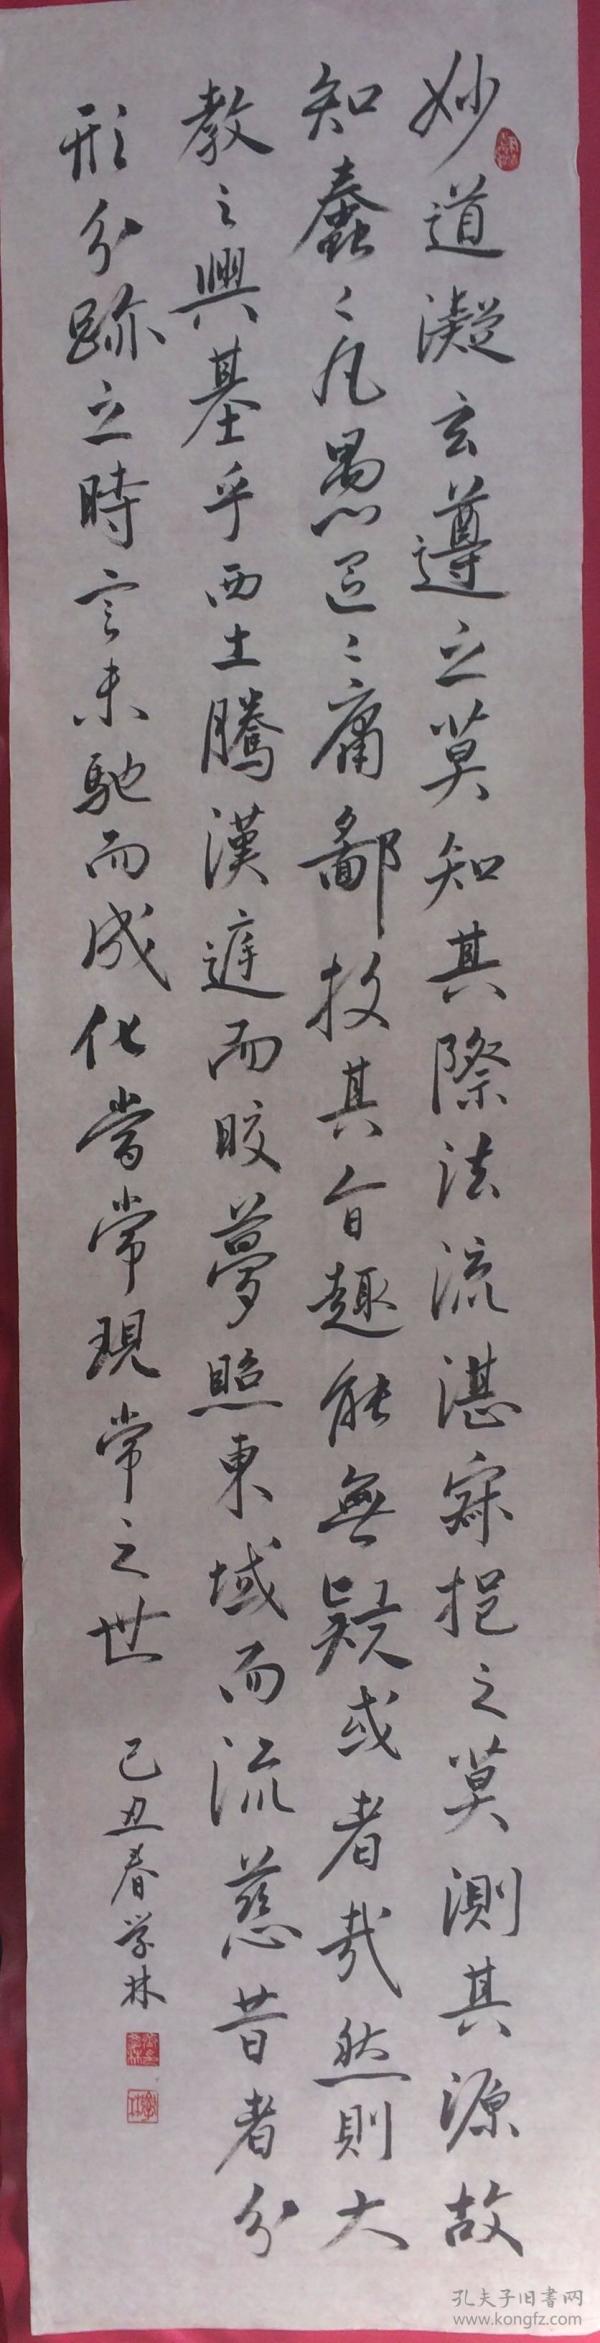 妙道凝玄遵之莫知其際法流湛寂挹之莫測其源故
知蠢〻凡愚區〻庸鄙投其旨趣能無疑或者哉然則大
教之興基乎西土騰漢庭而晈夢照東域而流慈昔者分
形分跡之時言未馳而成化當常現常之世
己丑春学林
孔夫子旧書网
www.kongfz.com